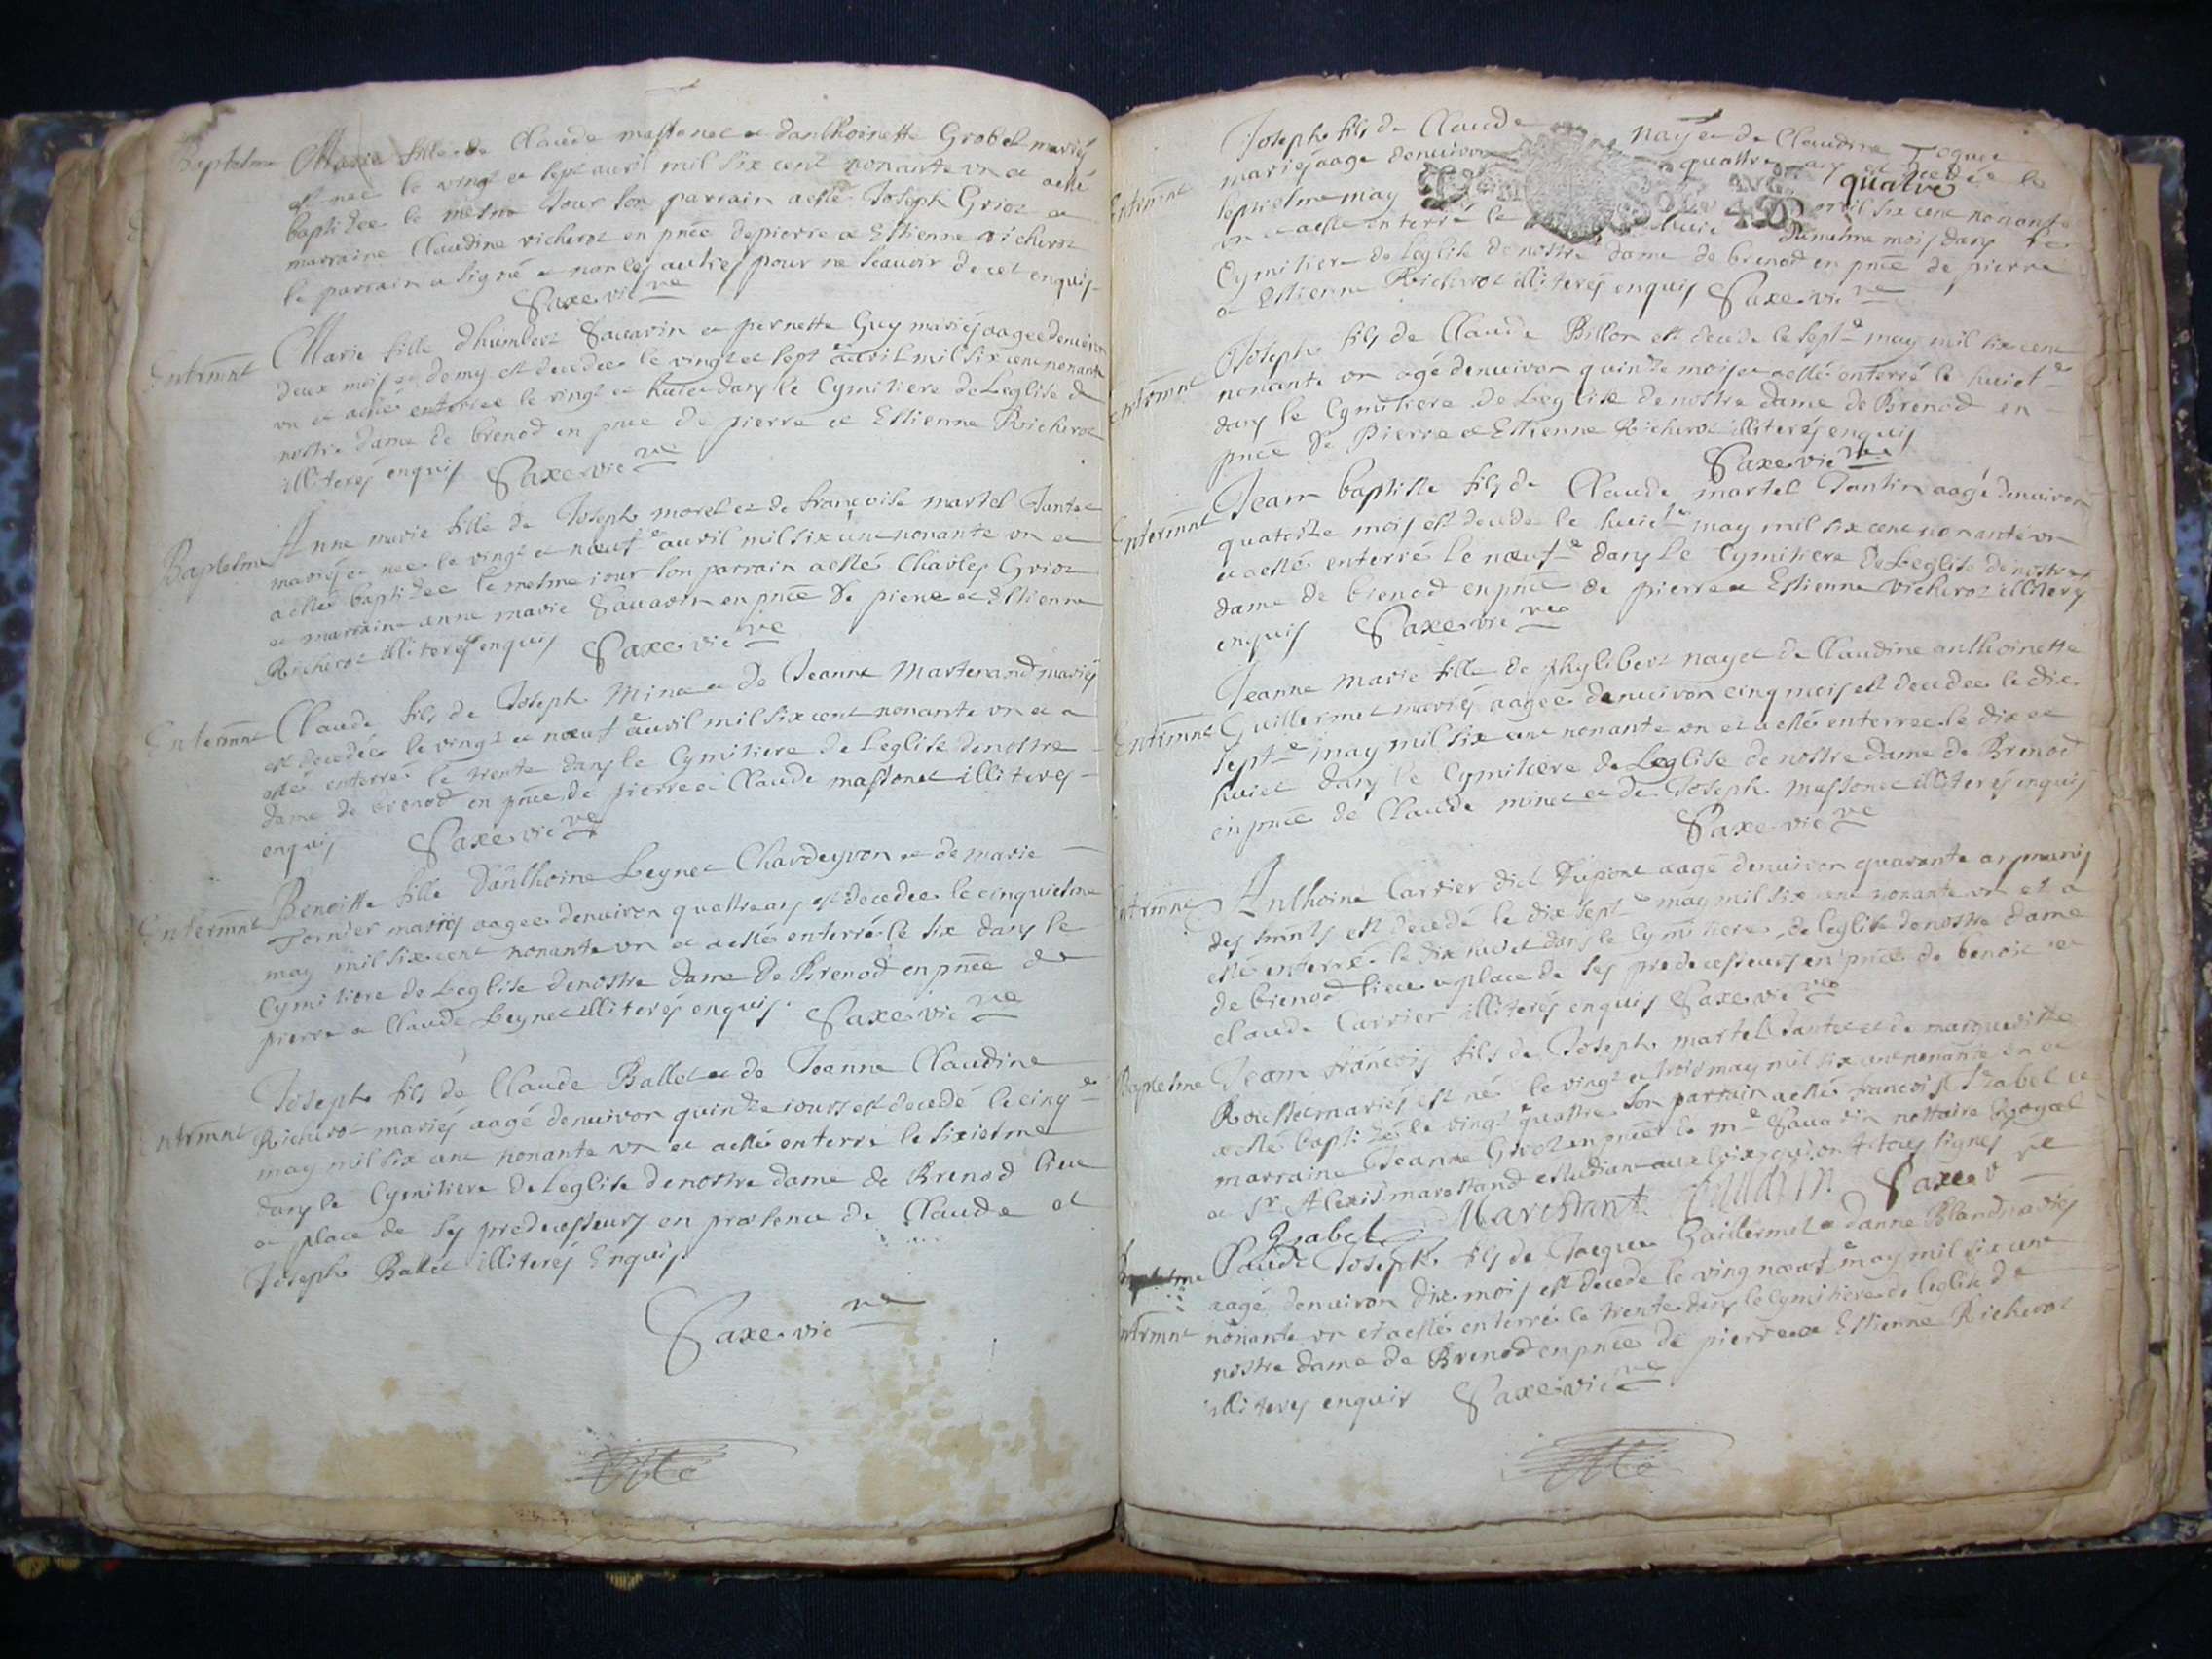 Baptesme Marie fille de Claude massonet et danthoinette Grobel mariés
est née le vingt et sept auril mil six cent nonante vn et a esté
baptizee le mesme Jour son parrain a esté Joseph Grioz et
marraine Claudine richeroz en pnce de pierre et Estienne richeroz
le parrain a signé et non les autres pour ne scauoir de ce enquis
Saxe vic re
Entermnt Marie fille dhumbert Sauarin et pernette Guy mariés aagee denuiron
deux mois et demy est decedee le vingt et sept e auril mil six cent nonante
vn et a esté enterree le vingt et huict dans le Cymitiere de Leglise de
nostre dame de brenod en pnce de pierre et Estienne Richeroz
illiterés enquis Saxe vic re
Baptesme Anne marie fille de Joseph morel et de francoise martel Jantet
mariés et nee le vingt et nœuf e auril mil six cent nonante vn et
a esté baptizee le mesme iour son parrain a esté Charles Grioz
et marraine anne marie Sauarin en pnce de pierre et Estienne
Richeroz illiterés enquis Saxe vic re
Entermnt Claude fils de Joseph Minet et de Jeanne Martenand mariés
est decedé le vingt et nœuf e auril mil six cent nonante vn et a
esté enterré le trente dans le Cymitiere de Leglise de nostre
dame de brenod en pnce de pierre et Claude massonet illiterés
enquis Saxe vic re
Entermnt Benoitte fille danthoine Beynet Chardeyron et de marie
Tornier mariés aagee denuiron quattre ans est decedee le cinquiesme
may mil six cent nonante vn et a esté enterré le six dans le
Cymitiere de Leglise de nostre dame de Brenod en pnce de
pierre et Claude Beynet illiterés enquis. Saxe vic re
Joseph fils de Claude Ballet et de Jeanne Claudine
Entrmnt Richeroz mariés aagé denuiron quinze iours est decedé le cinq e
may mil six cent nonante vn et a esté enterré le sixiesme
dans le Cymitiere de Leglise de nostre dame de Brenod lieu
et place de ses predecesseurs en presence de Claude et
Joseph Ballet illiterés Enquis
Saxe vic re
Joseph fils de Claude nay et de Claudine
Entermnt mariés aagé denuiron quattre ans est decedé le
septiesme may quatre mil six cent nonante
vn et a esté enterré le huict du mesme mois dans le
Cymitiere de Leglise de nostre dame de brenod en pnce de pierre
et Estienne Richeroz illiterés enquis Saxe vic re
Joseph fils de Claude Billon est decedé le sept e may mil six cent
Entermnt nonante vn agé denuiron quinze mois et a esté enterré le huict e
dans le Cymitiere de Leglise de nostre dame de Brenod en
pnce de Pierre et Estienne Richeroz illiterés enquis
Saxe vic re
Jean baptiste fils de Claude martel Jantin aagé denuiron
Entermnt quatorze mois est decedé le huict e may mil six cent nonante vn
et a esté enterré le nœuf e dans le Cymitiere de Leglise de nostre
dame de brenod en pnce de pierre et Estienne richeroz illiterés
enquis Saxe vic re
Jeanne marie fille de phylibert nay et de Claudine anthoinette
Entrmnt Guillermet mariés aagee denuiron cinq mois est decedee le dix
sept e may mil six cent nonante vn et a esté enterree le dix et
huict dans le Cymitiere de Leglise de nostre dame de Brenod
en pnce de Claude minet et de Joseph massonet illiterés enquis
Saxe vic re
Anthoine Carrier dict Dupont aagé denuiron quarante ans muni
des srmnts est decedé le dix sept e may mil six cent nonante vn et a
esté enterré le dix huict dans le Cymitiere de leglise de nostre dame
de brenod lieu et place de ses predecesseurs en pnce de benoit et
claude Carrier illiterés enquis Saxe vic re
Baptesme Jean francois fils de Joseph martel Jantet et de marguerite
Rousset mariés est né le vingt et trois may mil six cent nonante vn et
a esté baptizé le vingt quattre Son parrain a esté francois Izabel et
marraine Jeanne Grioz en pnce de m e Sauarin nottaire Royal
et Sr Alexis marchand estudiant aux loix qui ont tous signés
Izabel Marchant Sauarin Saxe v re
Claude Joseph fils de Jacque Guillermet et danne Blandin mariés
aagé denuiron dix mois est decedé le ving nœuf e may mil six cent
Entrmnt nonante vn et a esté enterré le trente dans le Cymitiere de leglise de
nostre dame de Brenod en pnce de pierre et Estienne Richeroz
illiterés enquis Saxe vic re